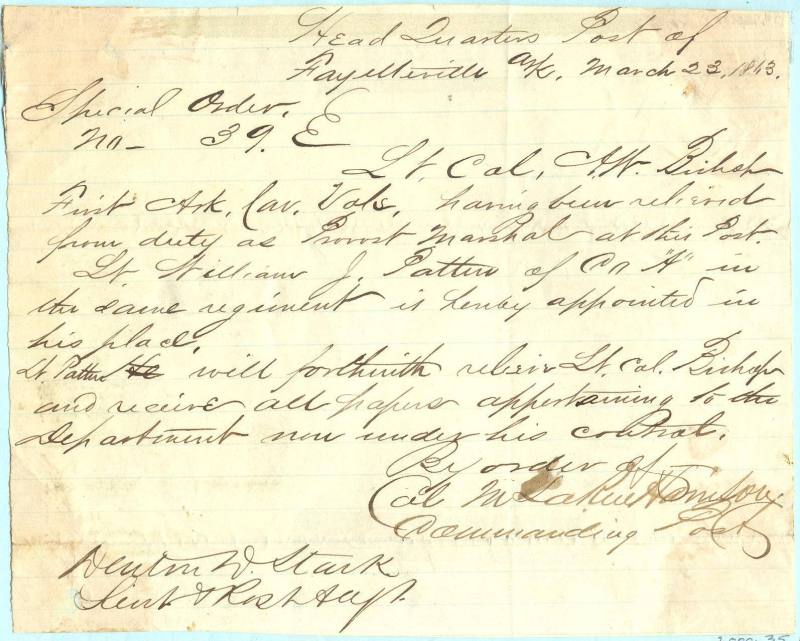 Head Quarters Post of
Fayetteville Ark, March 23, 1863.
Special Order,
No- 39. E
Lt. Col, A.W. Bishop
First Ark, Cav. Vols, having been relieved
from duty as Provost Marshal at this Post.
Lt. William J. Patten of Co "A" in
the same regiment is hereby appointed in
his place,
Lt. Patten He will forthwith relieve Lt. Col. Bishop
and receive all papers appertaining to the
Department now under his control.
By order of
Col M LaRue Harrison
Commanding Post
Denton D. Stark
Lieut & Post Adjt.